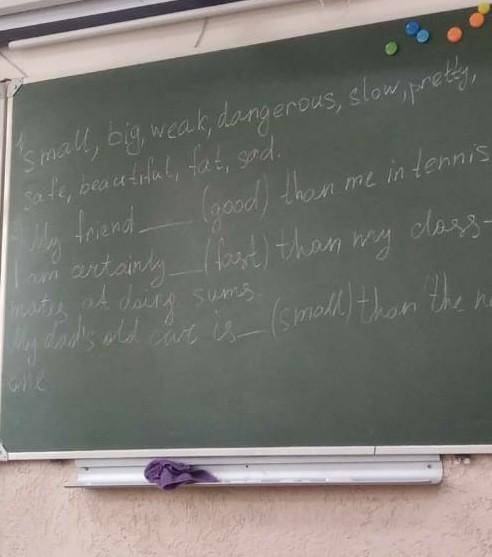 1 small, big, weak, dangerous, slow, pretty,
safe, beautiful, fat, sad.
My friend ___ (good) than me in tennis
I am certainly ___ (fast) than my class-
mates at doing sums.
My dad's old car is ___ (small) than the
one